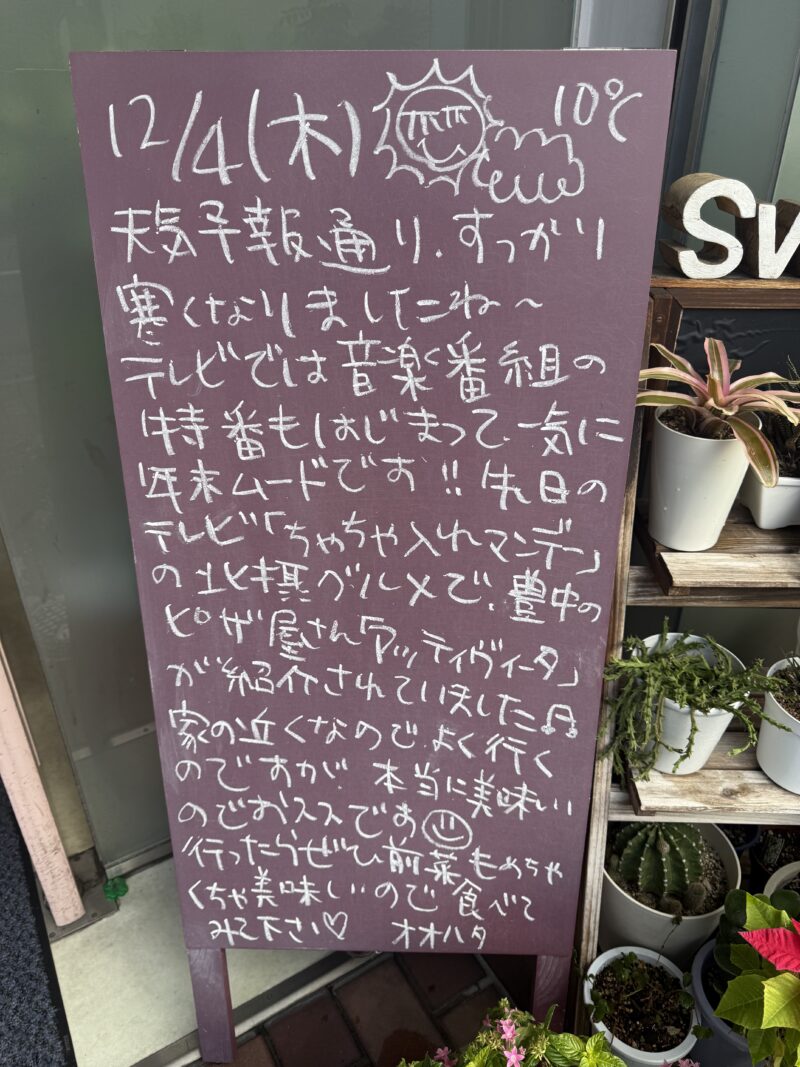 12/4(木) 10℃
天気予報通り、すっかり
寒くなりましたね〜
テレビでは音楽番組の
特番もはじまって、一気に
年末ムードです!! 先日の
テレビ「ちゃちゃ入れマンデー」
の北摂グルメで、豊中の
ピザ屋さん「アッティヴィータ」
が紹介されていました♫
家の近くなのでよく行く
のですが、本当に美味しい
のでおススメです☺
行ったらぜひ前菜もめちゃ
くちゃ美味しいので食べて
みて下さい♡ オオハタ